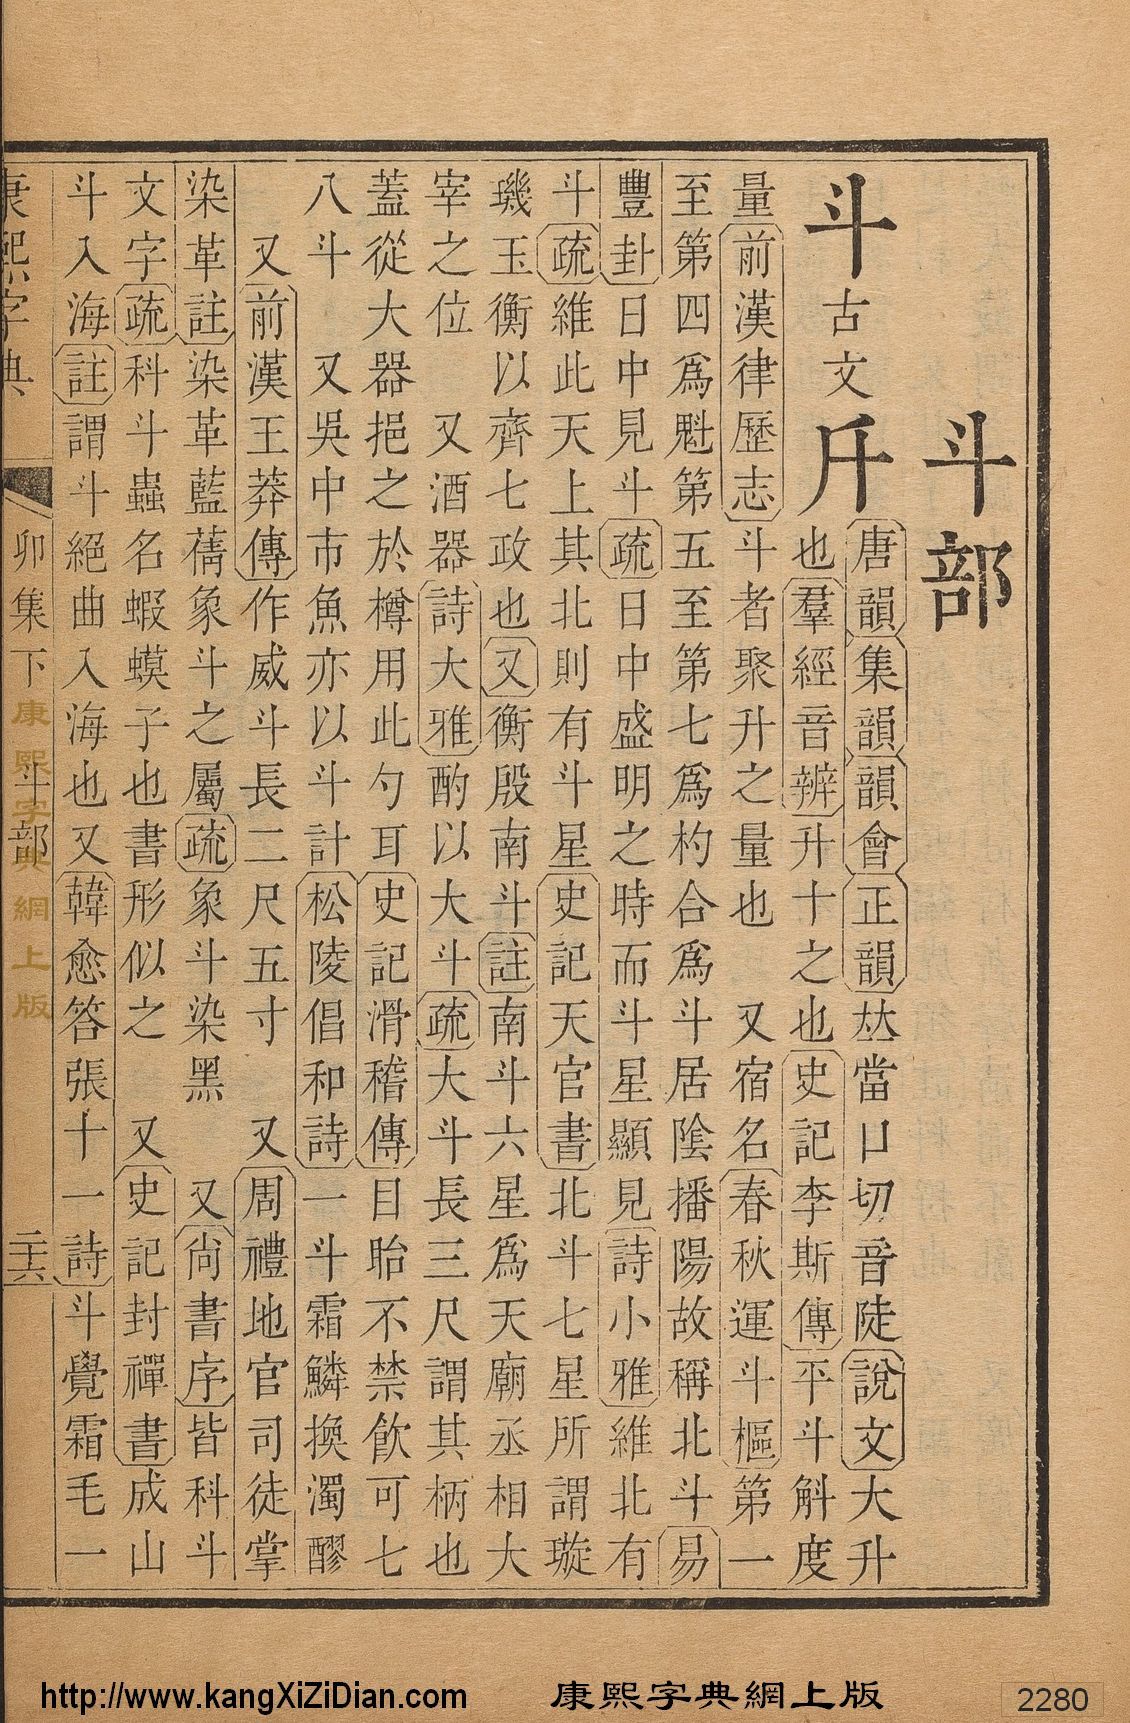 斗部
斗古文㪷唐韻集韻韻會正韻𠀤當口切音陡說文大升
也羣經音辨升十之也史記李斯傳平斗斛度
量前漢律歷志斗者聚升之量也 又宿名春秋運斗樞第一
至第四爲魁第五至第七爲杓合爲斗居陰播陽故稱北斗易
豐卦日中見斗疏日中盛明之時而斗星顯見詩小雅維北有
斗疏維此天上其北則有斗星史記天官書北斗七星所謂璇
璣玉衡以齊七政也又衡殷南斗註南斗六星爲天廟丞相大
宰之位 又酒器詩大雅酌以大斗疏大斗長三尺謂其柄也
蓋從大器挹之於樽用此勺耳史記滑稽傳目眙不禁飮可七
八斗 又吳中市魚亦以斗計松陵倡和詩一斗霜鱗換濁醪
又前漢王莽傳作威斗長二尺五寸 又周禮地官司徒掌
染革註染革藍蒨象斗之屬疏象斗染黑 又尙書序皆科斗
文字疏科斗蟲名蝦蟆子也書形似之 又史記封禪書成山
斗入海註謂斗絕曲入海也又韓愈答張十一詩斗覺霜毛一
康熙字典 卯集下 斗部 二十六
康熙字典網上版
http://www.kangXiZiDian.com 康熙字典網上版 2280